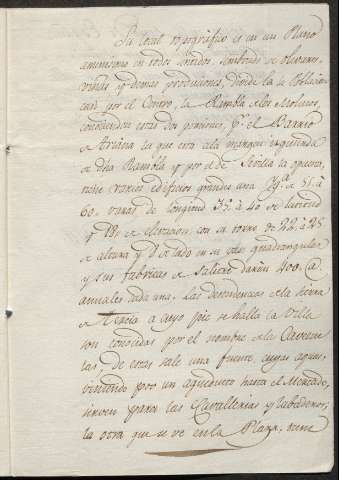 Su local topográfico es en un Plano
amenísimo en todos sentidos, sembrado de olivares,
viñas y demas producciones, divide la Poblacion
casi por el Centro, la Rambla de los Molinos,
conociendose estas dos porciones, pr. el Barrio
de Triana la que está ala margen izquierda
de dha Rambla y por el de Sevilla la opuesta,
tiene varios edificios grandes una Ygª. de 55 á
60. varas de longitud 35. á 40 de latitud
y 18. de elevacion, con su torre de 22. á 25
de altura y de lado en su vase quadrangular
y sus fabricas de salitre darán 400. @
anuales cada una. Las dependencias dela sierra
de Tercia a cuyo pie se halla la Villa
son conocidas por el nombre dela Cavezue
las, de estas sale una fuente, cuyas aguas,
viniendo por un aqueducto hasta el Mercado,
sirven para las Cavallerias y labaderos,
la otra que se ve en la Plaza, tiene